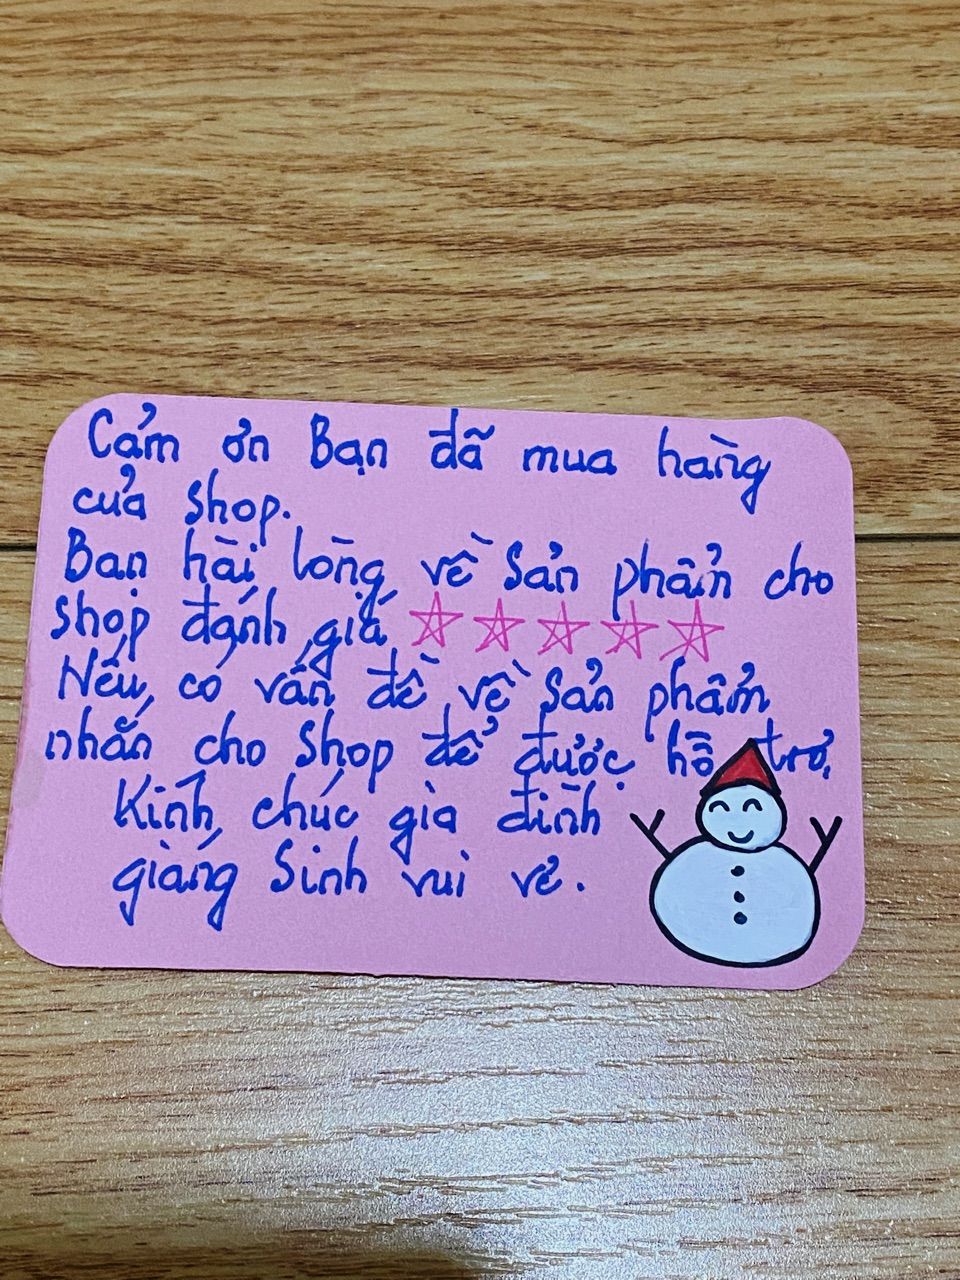 Cảm ơn Bạn đã mua hàng
của shop.
Bạn hài lòng về Sản phẩm cho
shop đánh giá ☆☆☆☆☆
Nếu có vấn đề về Sản phẩm
nhắn cho Shop để được hỗ trợ.
Kính chúc gia đình
giáng Sinh vui vẻ.